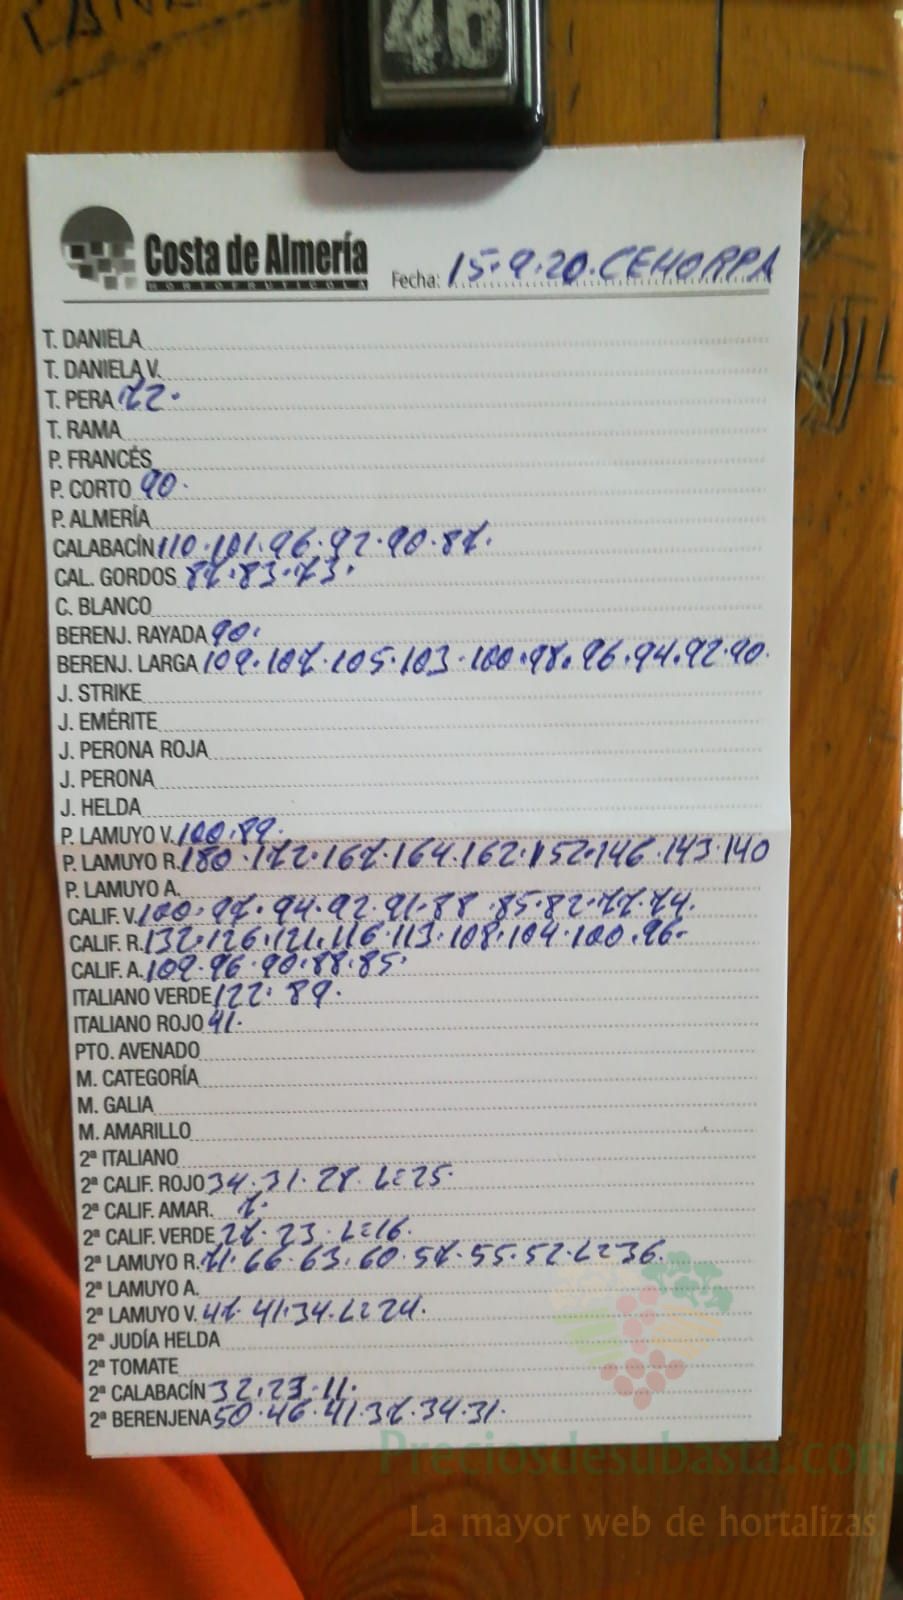 46
Costa de Almería
HORTOFRUTICOLA
Fecha: 15.9.20. CEHORPA
T. DANIELA
T. DANIELA V.
T. PERA 72.
T. RAMA
P. FRANCÉS
P. CORTO 90.
P. ALMERÍA
CALABACÍN 110.101.96.92.90.87.
CAL. GORDOS 87.83.73.
C. BLANCO
BERENJ. RAYADA 90.
BERENJ. LARGA 109.107.105.103.100.98.96.94.92.90.
J. STRIKE
J. EMÉRITE
J. PERONA ROJA
J. PERONA
J. HELDA
P. LAMUYO V. 100.89.
P. LAMUYO R. 180.172.167.164.162.152.146.143.140
P. LAMUYO A.
CALIF. V. 100.97.94.92.91.88.85.82.77.74.
CALIF. R. 132.126.121.116.113.108.104.100.96.
CALIF. A. 109.96.90.88.85.
ITALIANO VERDE 122.89.
ITALIANO ROJO 41.
PTO. AVENADO
M. CATEGORÍA
M. GALIA
M. AMARILLO
2ª ITALIANO
2ª CALIF. ROJO 34.31.28.L=25.
2ª CALIF. AMAR. 7.
2ª CALIF. VERDE 27.23.L=16.
2ª LAMUYO R. 71.66.63.60.57.55.52.L=36.
2ª LAMUYO A.
2ª LAMUYO V. 47.41.34.L=24.
2ª JUDÍA HELDA
2ª TOMATE
2ª CALABACÍN 32.23.11.
2ª BERENJENA 50.46.41.37.34.31.
Preciosdesubasta.com
La mayor web de hortalizas